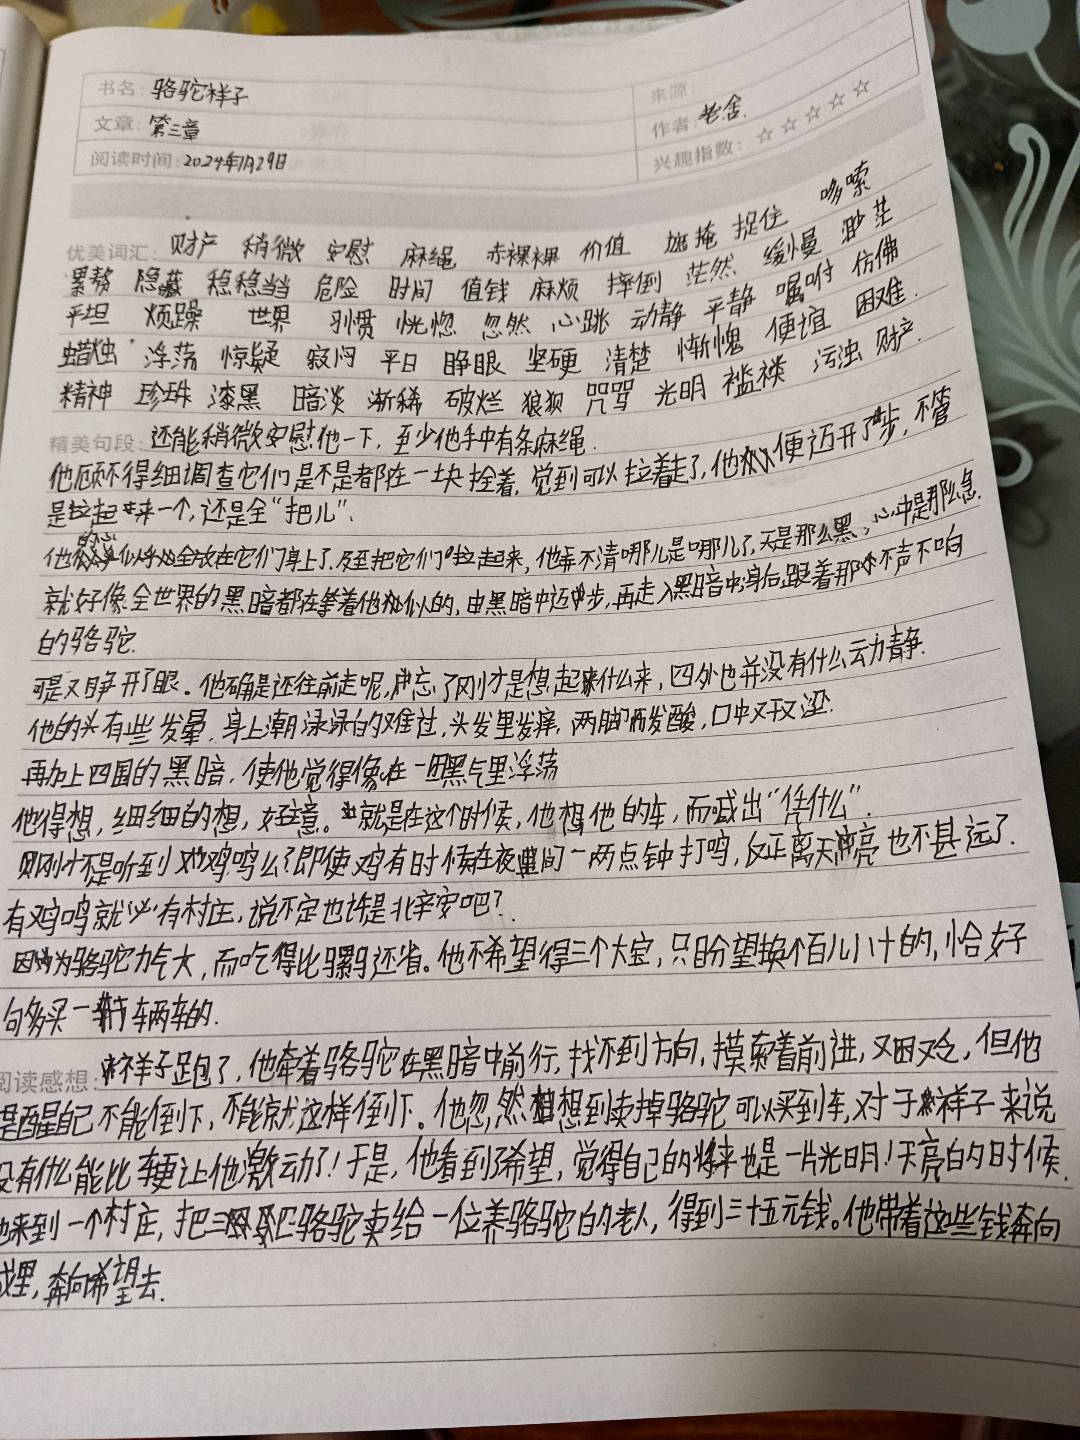 书名：骆驼祥子
来源：
文章：第三章
作者：老舍.
阅读时间：2024年1月29日
兴趣指数：☆☆☆☆☆
优美词汇：财产 稍微 安慰 麻绳 赤裸裸 价值 遮掩 捉住 哆嗦
累赘 隐藏 稳稳当当 危险 时间 值钱 麻烦 摔倒 茫然 缓慢 渺茫
平坦 烦躁 世界 习惯 恍惚 忽然 心跳 动静 平静 嘱咐 仿佛
蜡烛 浮荡 惊疑 寂闷 平日 睁眼 坚硬 清楚 惭愧 便宜 困难.
精神 珍珠 漆黑 暗淡 渐稀 破烂 狼狈 咒骂 光明 褴褛 污浊 财产.
精美句段：还能稍微安慰他一下，至少他手中有条麻绳.
他顾不得细调查它们是不是都在一块拴着，觉到可以拉着走了，他便迈开了步，不管
是拉起来一个，还是全“把儿”.
他的心似乎全放在它们身上了.及至把它们拉起来，他弄不清哪儿是哪儿了，天是那么黑，心中是那么急.
就好像全世界的黑暗都在等着他似的，由黑暗中迈步，再走入黑暗中；身后跟着那不声不响
的骆驼.
可是又睁开了眼。他确是还往前走呢，忘了刚才是想起什么来，四外也并没有什么动静.
他的头有些发晕，身上潮渌渌的难过，头发里发痒，两脚发酸，口中又干又涩.
再加上四围的黑暗，使他觉得像在一团黑气里浮荡
他得想，细细的想，好主意。就是在这个时候，他想他的车，而喊出“凭什么”.
刚才不是听到鸡鸣么？即使鸡有时候在夜间一两点钟打鸣，反正离天亮也不甚远了.
有鸡鸣就必有村庄，说不定也许是北辛安吧？
因为骆驼力气大，而吃得比骡马还省。他不希望得三个大宝，只盼望换个百儿八十的，恰好
够买一辆车的.
阅读感想：祥子跑了，他牵着骆驼在黑暗中前行，找不到方向，摸索着前进，又困又乏，但他
提醒自己不能倒下，不能就这样倒下。他忽然想到卖掉骆驼可以买到车，对于祥子来说
没有什么能比车更让他激动了！于是，他看到了希望，觉得自己的将来也是一片光明！天亮的时候.
他来到一个村庄，把三匹骆驼卖给一位养骆驼的老人，得到三十五元钱。他带着这些钱奔向
城里，奔向希望去.